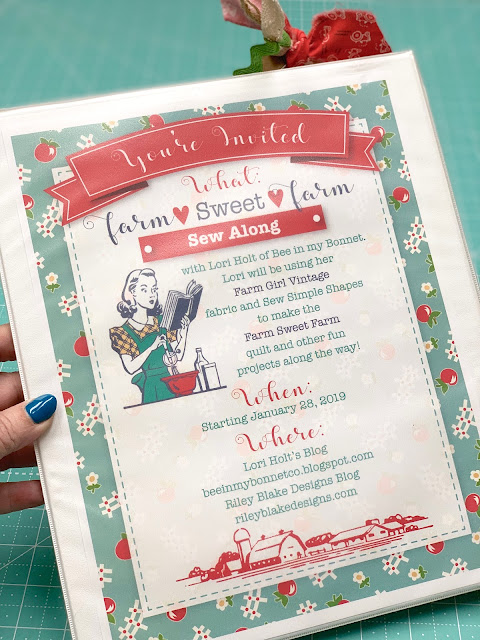 You're Invited
What:
farm Sweet farm
Sew Along
with Lori Holt of Bee in my Bonnet.
Lori will be using her
Farm Girl Vintage
fabric and Sew Simple Shapes
to make the
Farm Sweet Farm
quilt and other fun
projects along the way!
When:
Starting January 28, 2019
Where:
Lori Holt's Blog
beeinmybonnetco.blogspot.com
Riley Blake Designs Blog
rileyblakedesigns.com